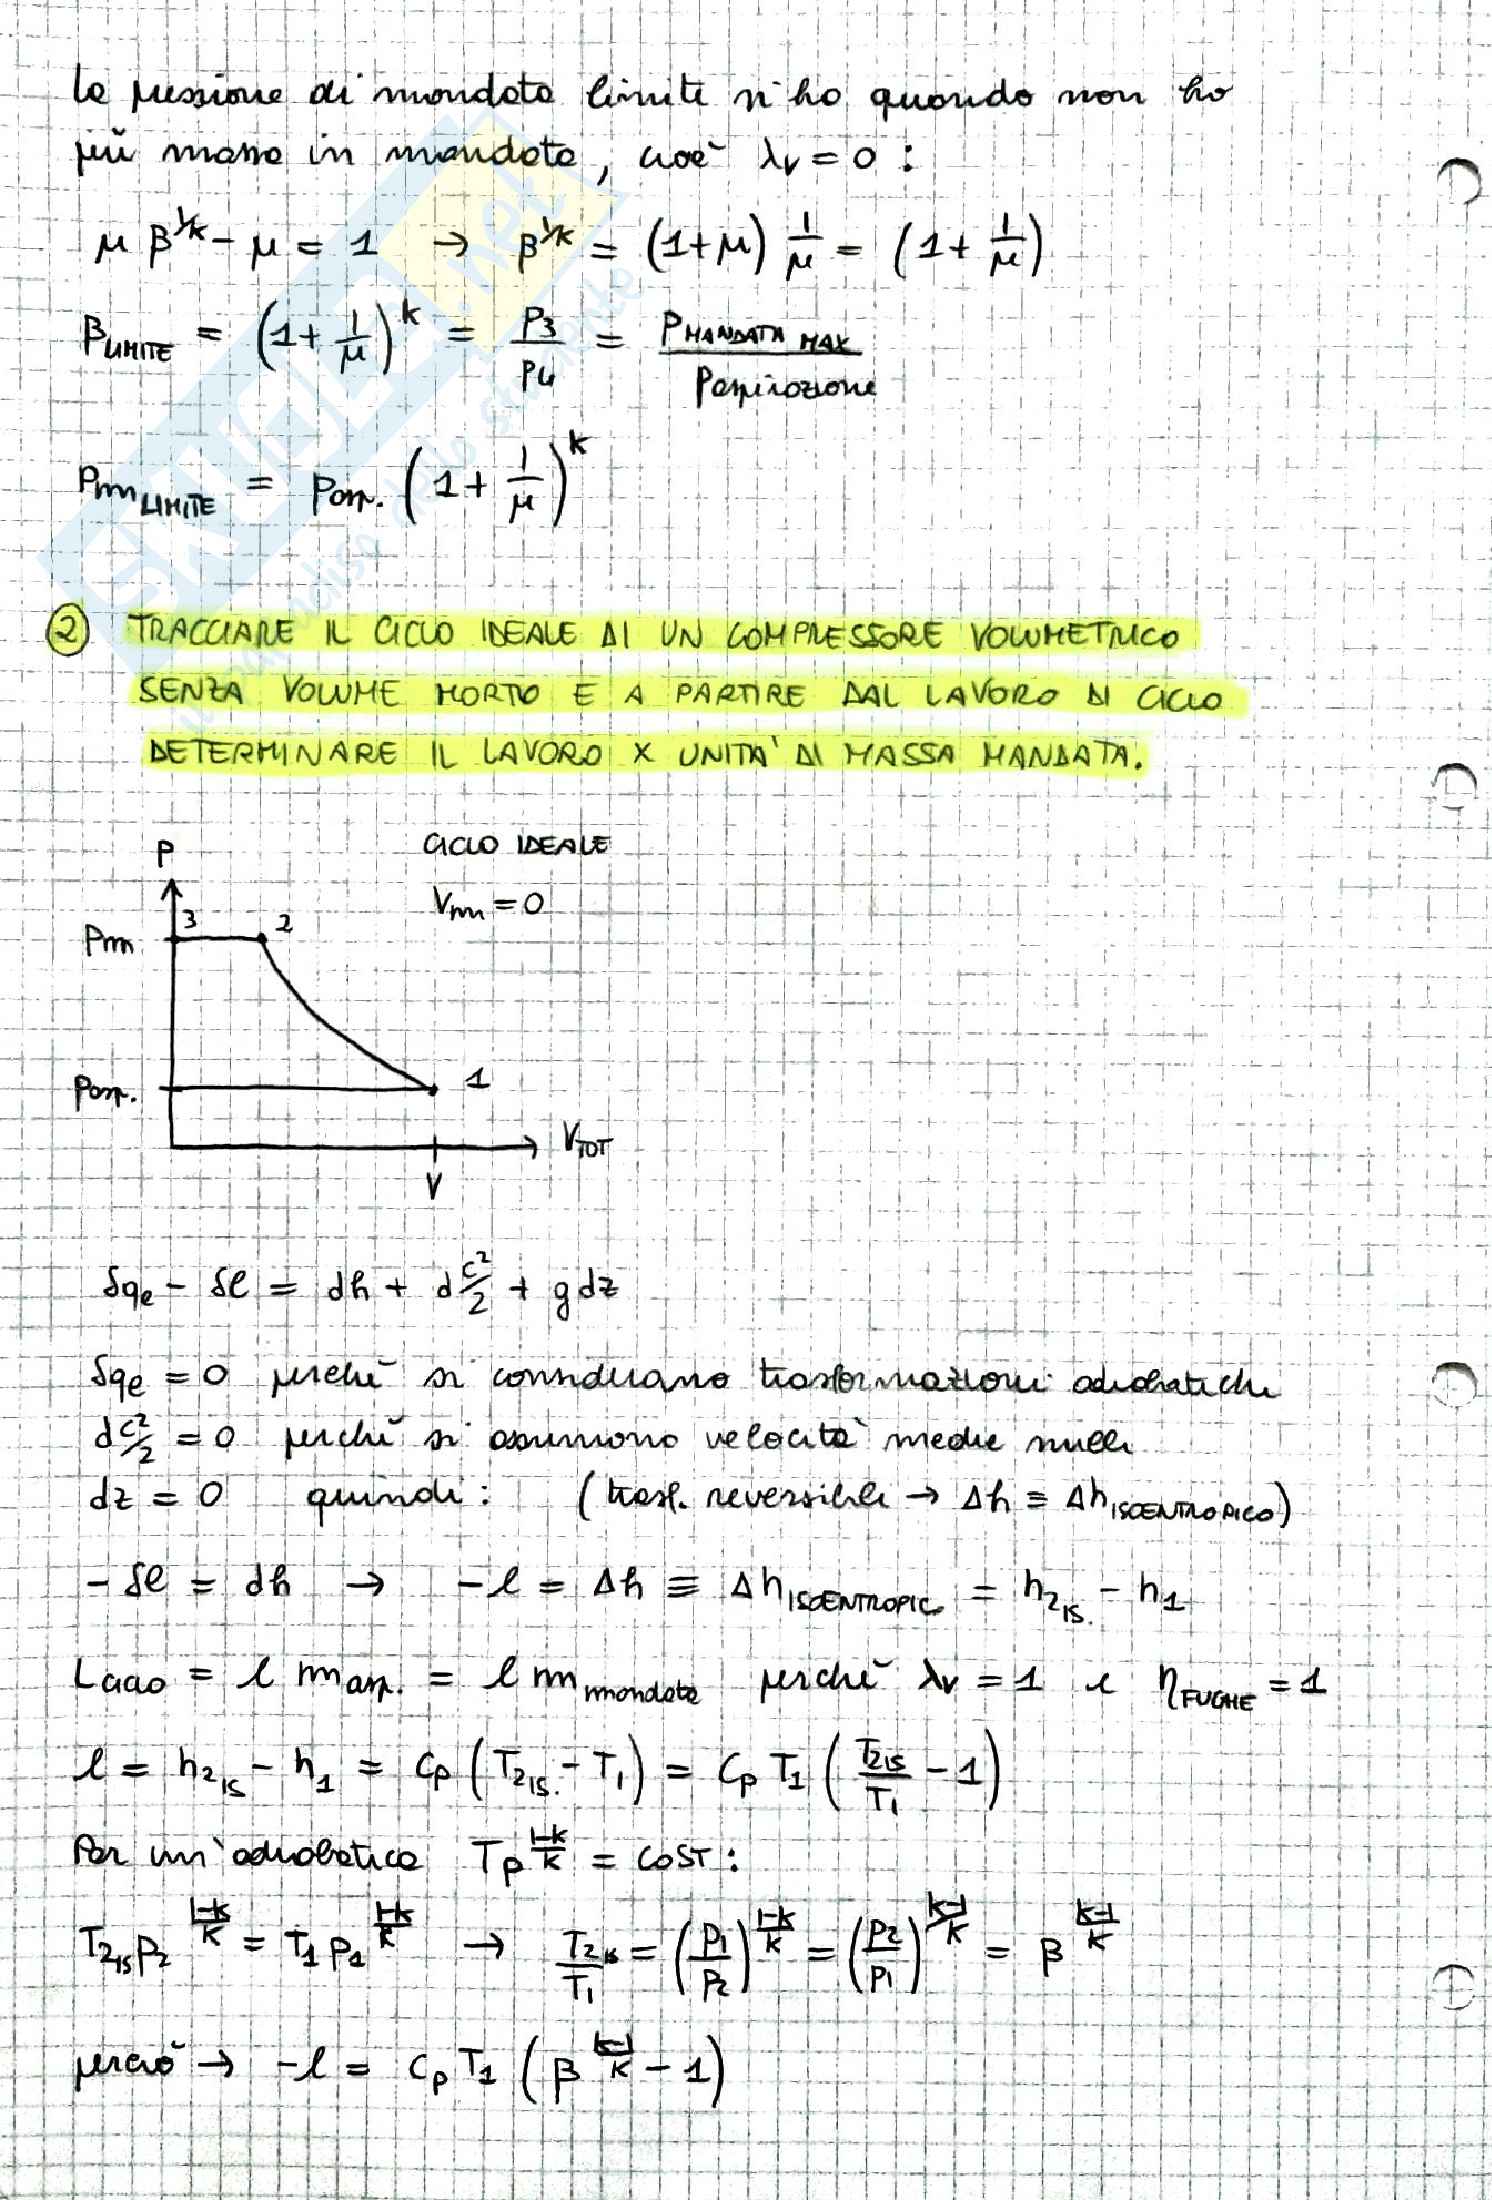 la pressione di mandata limite si ha quando non ho
più massa in mandata, cioè λv = 0 :
μ β^1/k - μ = 1 → β^1/k = (1+μ) 1/μ = (1 + 1/μ)
βLIMITE = (1 + 1/μ)^k = p3/p4 = PMANDATA MAX/Paspirazione
PmLIMITE = Pasp. (1 + 1/μ)^k
② TRACCIARE IL CICLO IDEALE DI UN COMPRESSORE VOLUMETRICO
SENZA VOLUME MORTO E A PARTIRE DAL LAVORO DI CICLO
DETERMINARE IL LAVORO X UNITA' DI MASSA MANDATA.
P
CICLO IDEALE
Vm = 0
3 2
Pm
Pasp. 1
VTOT
V
δqe - δl = dh + dc²/2 + gdz
δqe = 0 perchè si considerano trasformazioni adiabatiche
dc²/2 = 0 perchè si assumono velocità medie nulle
dz = 0 quindi: (trasf. reversibile → Δh ≡ ΔhISOENTROPICO)
-δl = dh → -l = Δh ≡ ΔhISOENTROPIC = h2IS. - h1
LCICLO = l masp. = l mmandata perchè λv = 1 e ηFUGHE = 1
l = h2IS - h1 = Cp (T2IS. - T1) = Cp T1 (T2IS/T1 - 1)
Per un'adiabatica Tp^(1-k)/k = COST :
T2IS p2^(1-k)/k = T1 p1^(1-k)/k → T2IS/T1 = (p1/p2)^(1-k)/k = (p2/p1)^(k-1)/k = β^(k-1)/k
perciò → -l = Cp T1 (β^(k-1)/k - 1)